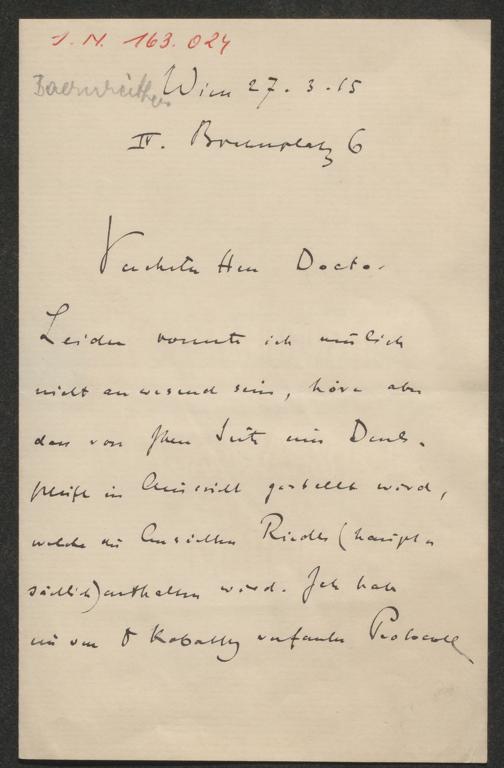 J. N. 163.024
Baernreither
Wien 27.3.15
IV. 6
Verehrter Herr Doctor
Leider konnte ich neulich
nicht anwesend sein, höre aber
dass von Ihrer Seite eine Denk-
schrift in Aussicht gestellt wird,
welche die Ansichten Riedls (haupt-
sächlich) enthalten wird. Ich habe
ein von D verfasstes Protocoll